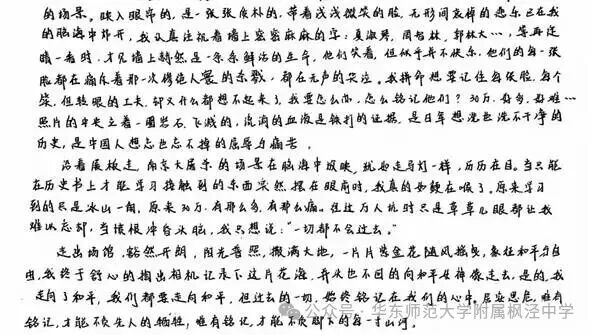 的场景。映入眼帘的,是一张张质朴的,带着浅浅微笑的脸,无形间哀悼的悲乐已在我
的脑海中炸开,我认真注视着墙上密密麻麻的字:夏淑琴,周智林,郭林大…,等再定
睛一看时,才见墙上赫然是一条条鲜活的生命,他们笑着,但似乎并不快乐,他们的每一张
脸都在痛斥着那一次惨绝人寰的杀戮,都在无声的哭泣。我拼命想要记住每张脸,每个
笑,但转眼的工夫,却又什么都想不起来了,我要怎么办,怎么铭记他们?30万,好多,好难…
照片的中央立着一圈岩石,飞溅的,流淌的血液是铁打的证据,是日军想洗也洗不干净的
历史,是中国人想忘也忘不掉的屈辱与痛苦。
沿着展板走,南京大屠杀的场景在脑海中放映,犹如走马灯一样,历历在目。当只能
在历史书上才能学习接触到的东西突然摆在眼前时,我真的如鲠在喉了。原来学习
到的只是冰山一角,原来30万,有那么多,有那么痛。但过万人坑时只是草草几眼都让我
难以忘却,当愤恨冲昏头脑,我只想说:“一切都不会过去。”
走出场馆,豁然开朗,阳光普照,撒满大地,一片片紫金花随风摇曳,象征和平与自
由,我终于舒心的掏出相机记录下这片花海,并头也不回的向和平女神像走去。是的,我
走向了和平,我们都要走向和平,但过去的一切,始终铭记在我们的心中,居安思危,唯有
铭记,才能不负先人的牺牲,唯有铭记,才能不负脚下的每一寸山河。
公众号·华东师范大学附属枫泾中学